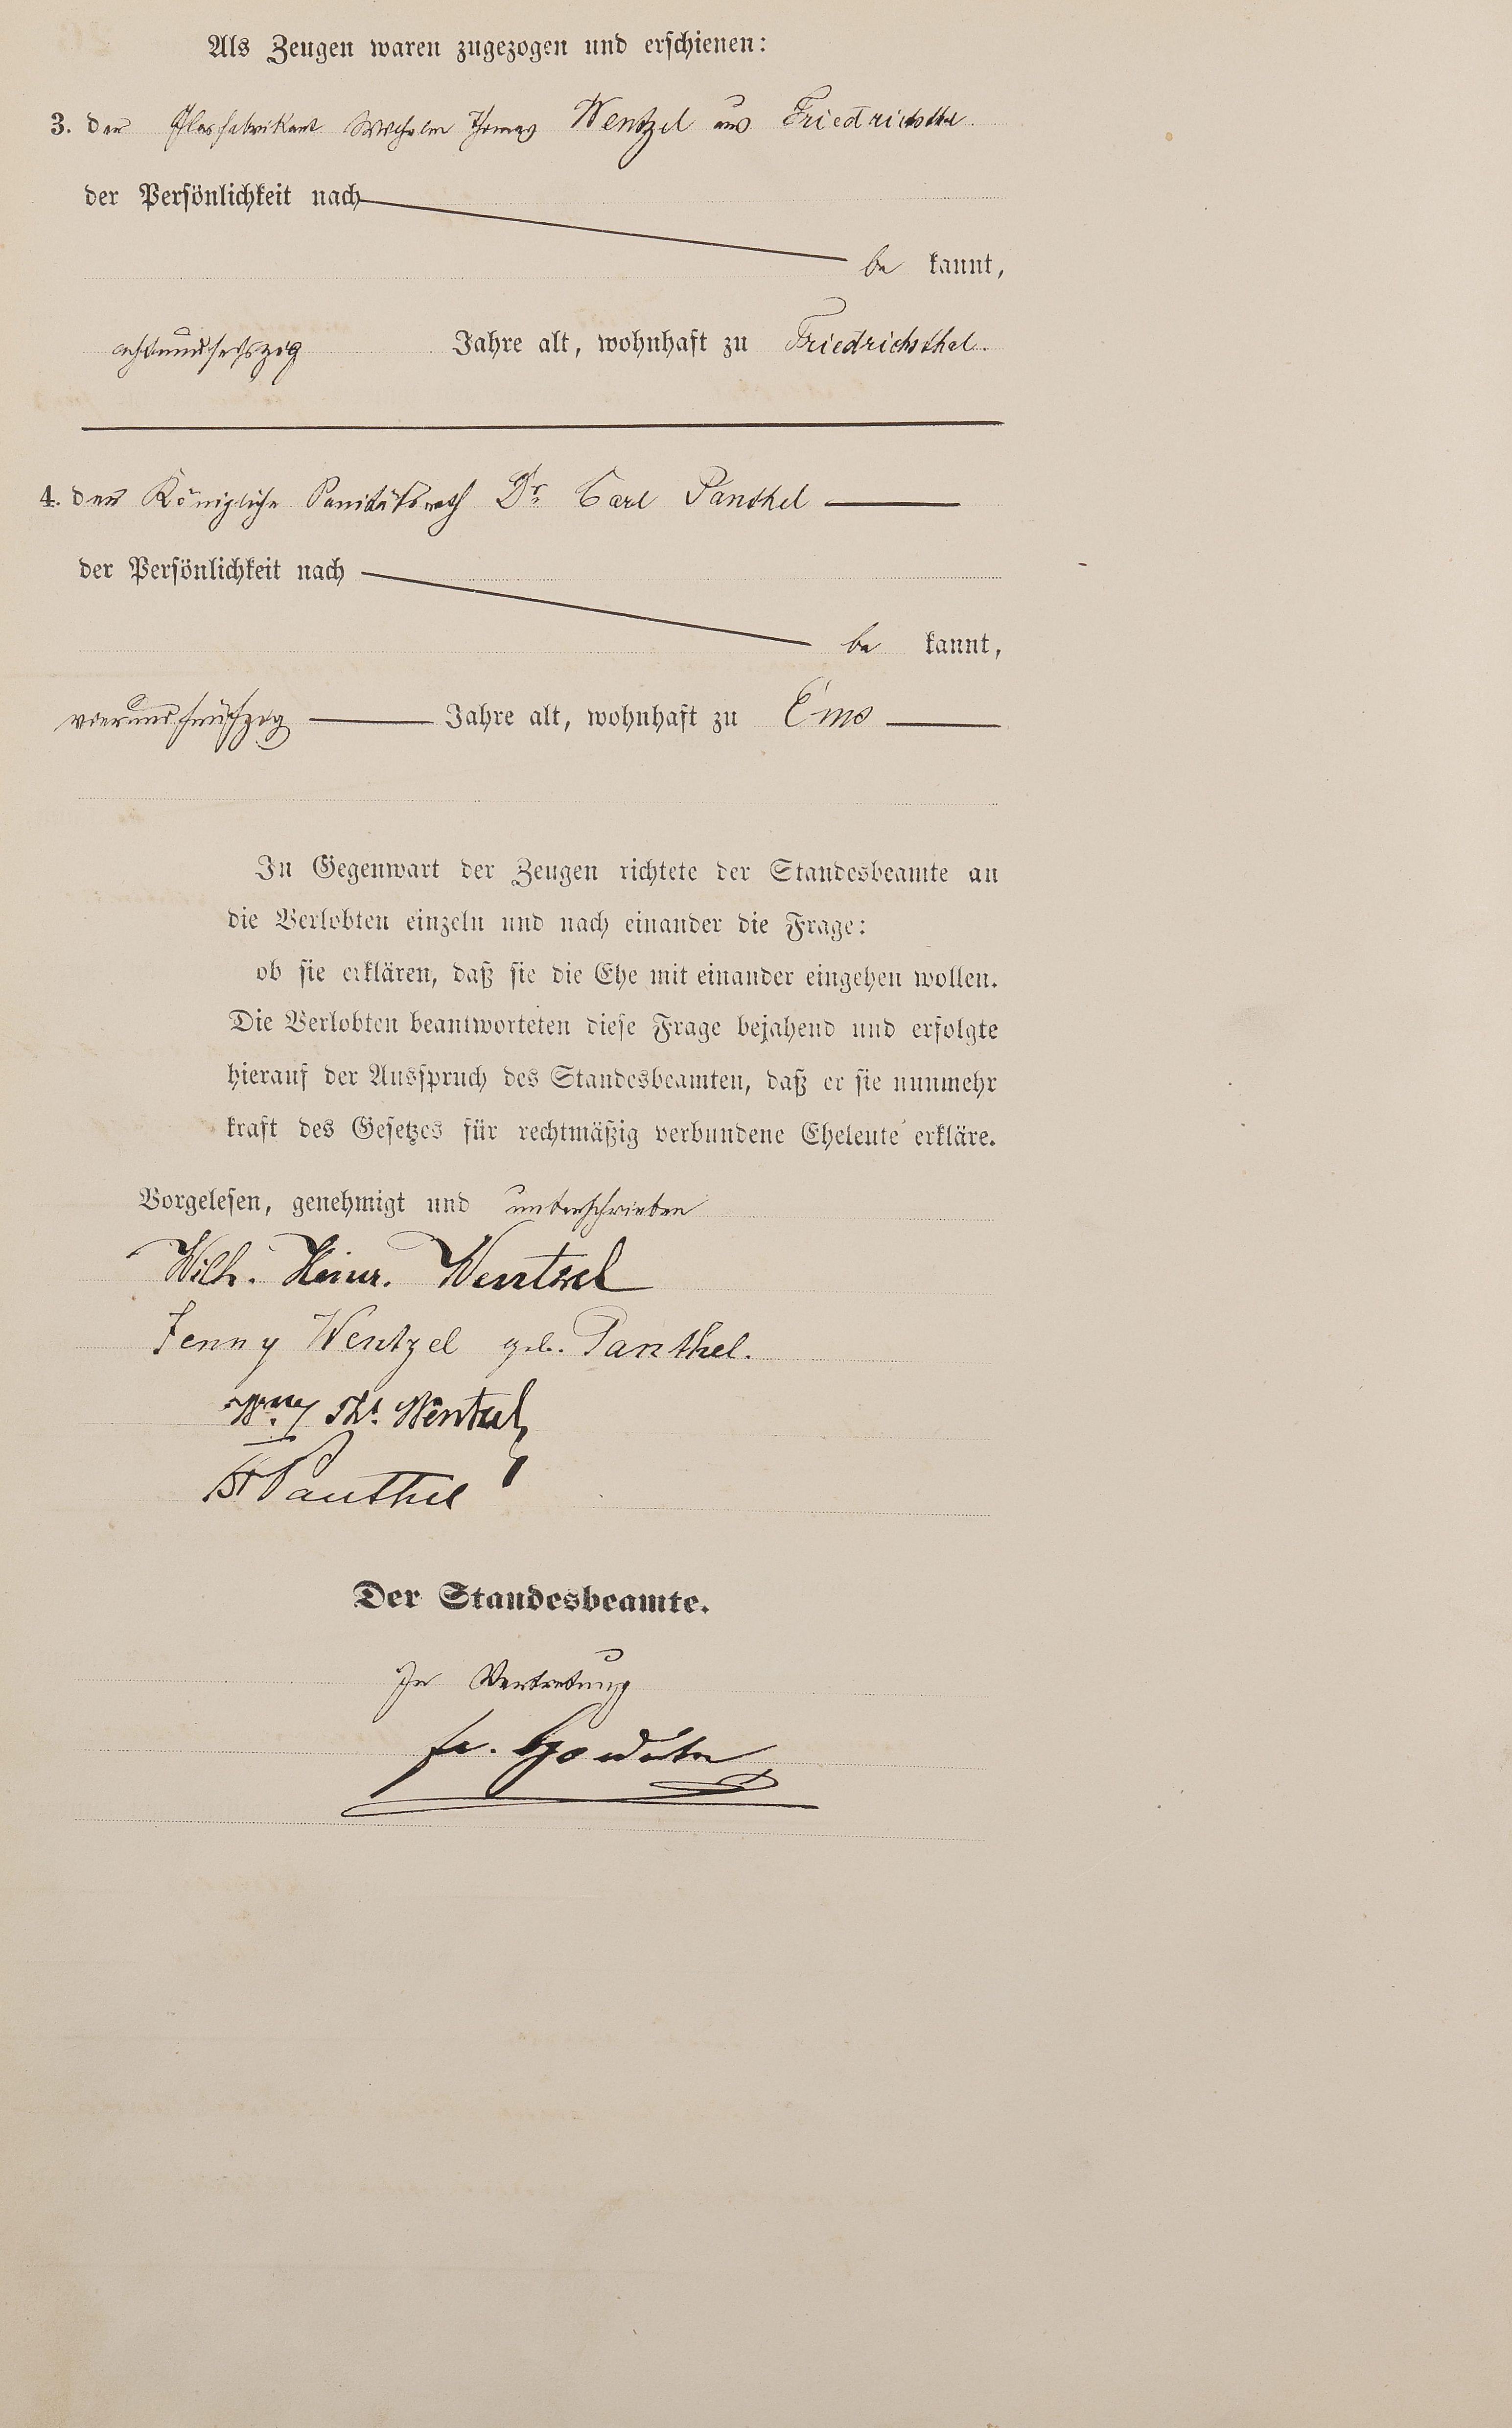 Als Zeugen waren zugezogen und erschienen:
3. der Glasfabrikant Wilhelm Thomas Wentzel aus Friedrichsthal
der Persönlichkeit nach
be kannt,
achtundsechszig Jahre alt, wohnhaft zu Friedrichsthal.
4. der Königliche Sanitätsrath Dr. Carl Panthel
der Persönlichkeit nach
be kannt,
vierundfünfzig Jahre alt, wohnhaft zu Ems
In Gegenwart der Zeugen richtete der Standesbeamte an
die Verlobten einzeln und nach einander die Frage:
ob sie erklären, daß sie die Ehe mit einander eingehen wollen.
Die Verlobten beantworteten diese Frage bejahend und erfolgte
hierauf der Ausspruch des Standesbeamten, daß er sie nunmehr
kraft des Gesetzes für rechtmäßig verbundene Eheleute erkläre.
Vorgelesen, genehmigt und unterschrieben
Wilh. Heinr. Wentzel
Jenny Wentzel geb. Panthel.
Ths. Wentzel
Panthel
Der Standesbeamte.
In Vertretung